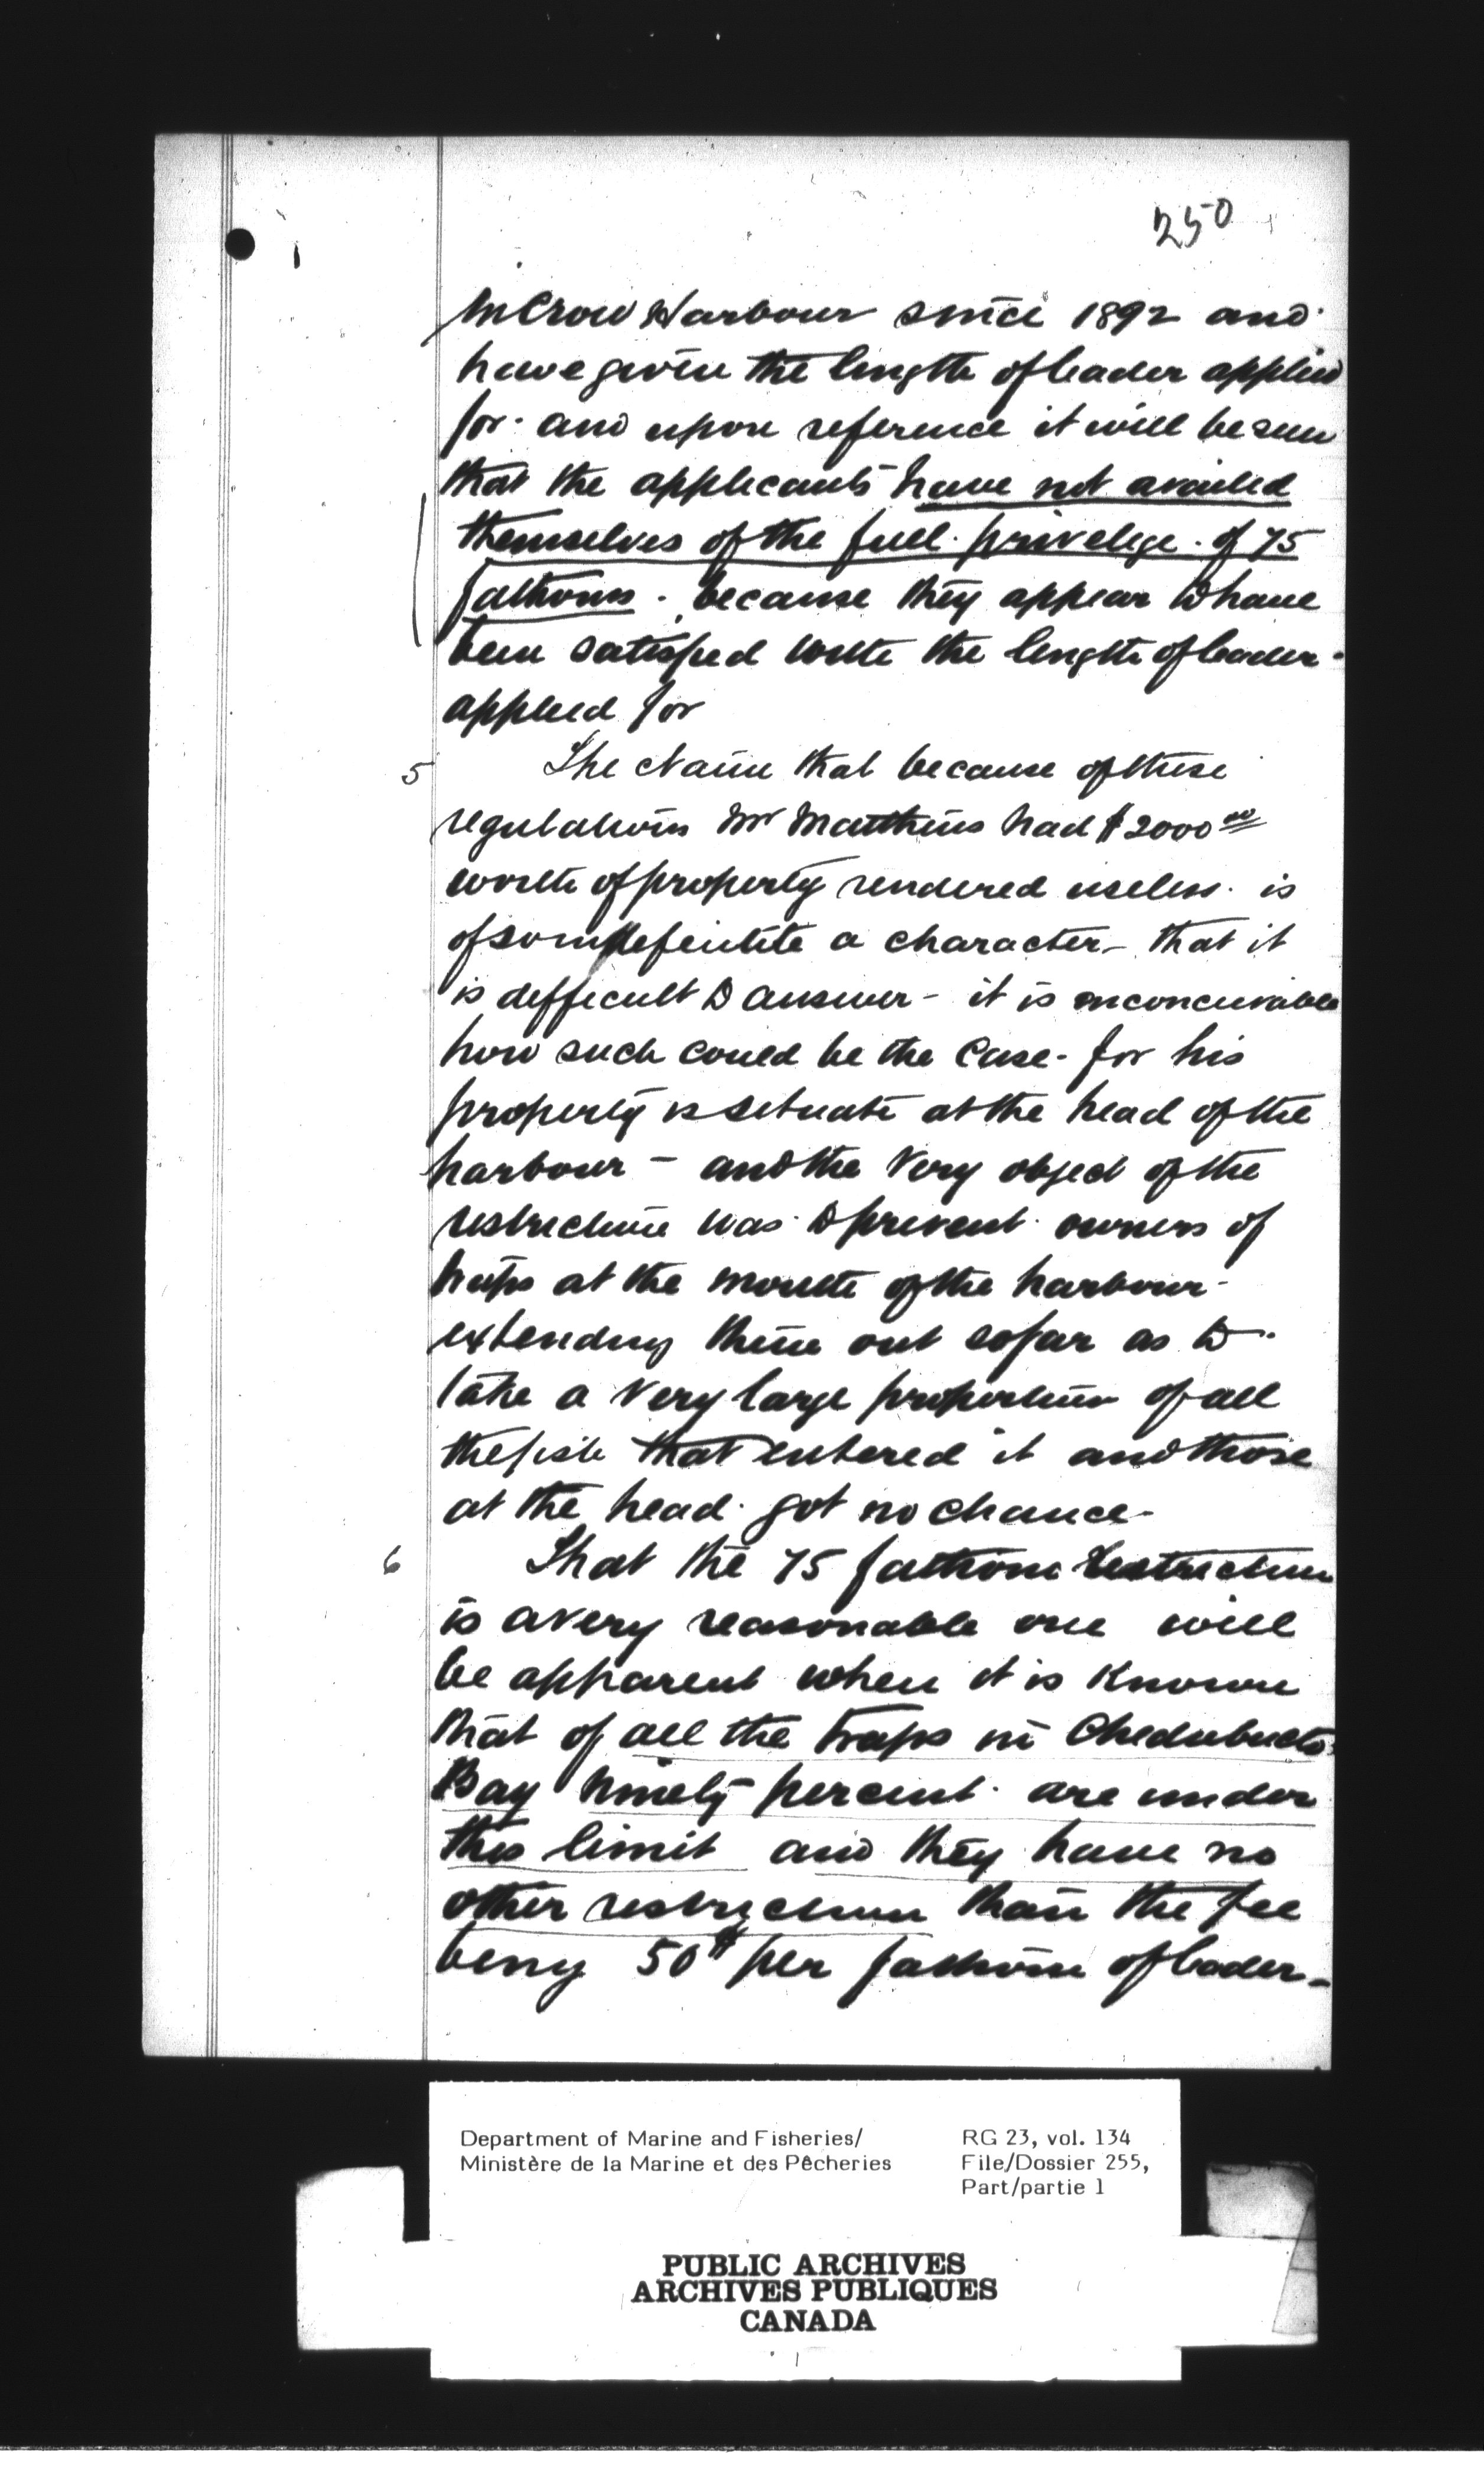 250
In Crow Harbour since 1892 and
have given the length of leader applied
for. and upon reference it will be seen
that the applicants have not availed
themselves of the full privelege of 75
fathoms. because they appear to have
been satisfied with the length of leader
applied for
5 The claim that because of these
regulations Mr Matthews had $2000 00
worth of property rendered useless. is
of so indefinite a character - that it
is difficult to answer - it is inconceivable
how such could be the case - for his
property is situate at the head of the
harbour - and the very object of the
restriction was to prevent owners of
traps at the mouth of the harbour -
extending them out so far as to
take a very large proportion of all
the fish that entered it and those
at the head got no chance -
6 That the 75 fathom restriction
is a very reasonable one will
be apparent when it is known
that of all the traps in Chedabucto
Bay ninety percent are under
this limit and they have no
other restriction than the fee
being 50¢ per fathom of leader -
Department of Marine and Fisheries/
Ministère de la Marine et des Pêcheries
RG 23, vol. 134
File/Dossier 255,
Part/partie 1
PUBLIC ARCHIVES
ARCHIVES PUBLIQUES
CANADA